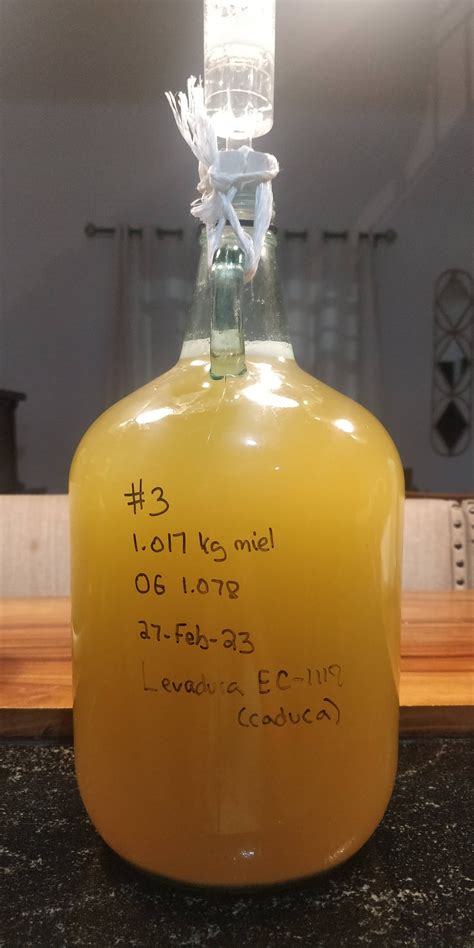 #3
1.017 kg miel
OG 1.078
27-Feb-23
Levaduca EC-1119
(caduca)